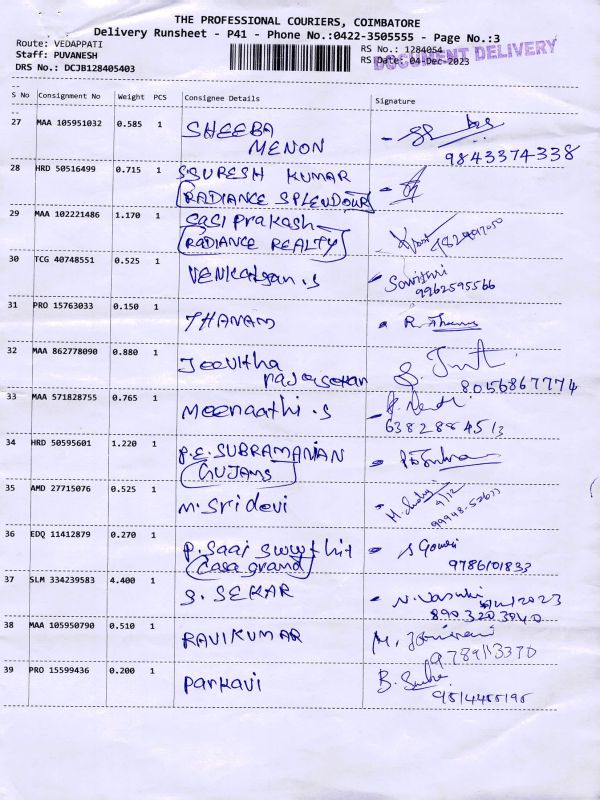 THE PROFESSIONAL COURIERS, COIMBATORE
Delivery Runsheet - P41 - Phone No.:0422-3505555 - Page No.:3
Route: VEDAPPATI
Staff: PUVANESH
DRS No.: DCJB128405403
RS No.: 1284054
RS Date: 04-Dec-2023
DOCUMENT DELIVERY
S No Consignment No Weight PCS Consignee Details Signature
27 MAA 105951032 0.585 1 SHEEBA
MENON
9843374338
28 HRD 50516499 0.715 1 S.SURESH KUMAR
RADIANCE SPLENDOUR
29 MAA 102221486 1.170 1 Sasi Prakash
RADIANCE REALTY
30 TCG 40748551 0.525 1 .S
9962595566
31 PRO 15763033 0.150 1 THANAM R.
32 MAA 862778090 0.880 1 Jeevitha
80156867774
33 MAA 571828755 0.765 1 Meenaathi.S
6382884513
34 HRD 50595601 1.220 1 P.E.SUBRAMANIAN
35 AMD 27715076 0.525 1 M.Sridevi
36 EDQ 11412879 0.270 1 P.Saai S Gowri
Casa grand 9786101833
37 SLM 334239583 4.400 1 S. SEKAR N. Vasuki
8903203040
38 MAA 105950790 0.510 1 RAVIKUMAR M.
39 PRO 15599436 0.200 1 Parkavi B.